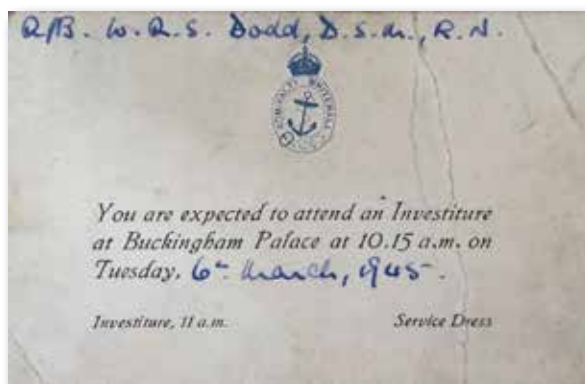 A/B. W.R.S. Dodd, D.S.M., R.N.
ADMIRALTY WHITEHALL
You are expected to attend an Investiture
at Buckingham Palace at 10.15 a.m. on
Tuesday, 6th March, 1945.
Investiture, 11 a.m. Service Dress